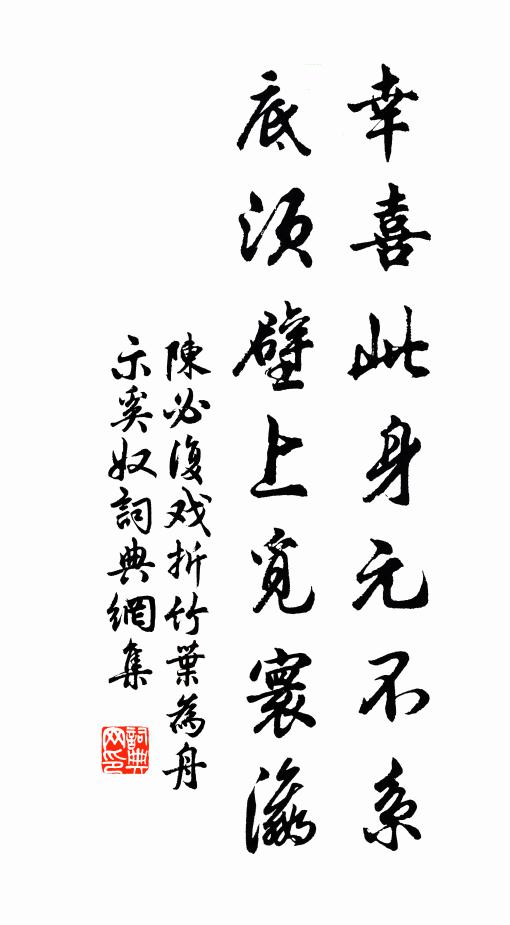 幸喜此身元不系
底须壁上觅寰瀛
陳必復戏折竹葉為舟
示奚奴詞典網集
詞典网印